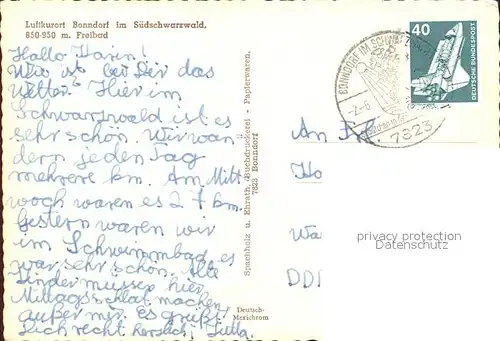 Luftkurort Bonndorf im Südschwarzwald,
850-950 m. Freibad
Hallo Karin!
Wie ist bei Dir das
Wetter? Hier im
Schwarzwald ist es
sehr schön. Wir wan
dern jeden Tag
mehrere km. Am Mitt
woch waren es 27 km.
Gestern waren wir
im Schwimmbad es
war sehr schön. Alle
Kinder müssen hier
Mittagsschlaf machen
außer mir. Es grüßt
Dich recht herzlich Jutta.
Spachholz u. Ehrath, Buchdruckerei - Papierwaren,
7823 Bonndorf
Deutsch-
Mexichrom
BONNDORF IM SCHWARZWALD
-2.-6
7823
40
DEUTSCHE BUNDESPOST
An Frl.
Ho
Wa
DDI
privacy protection
Datenschutz